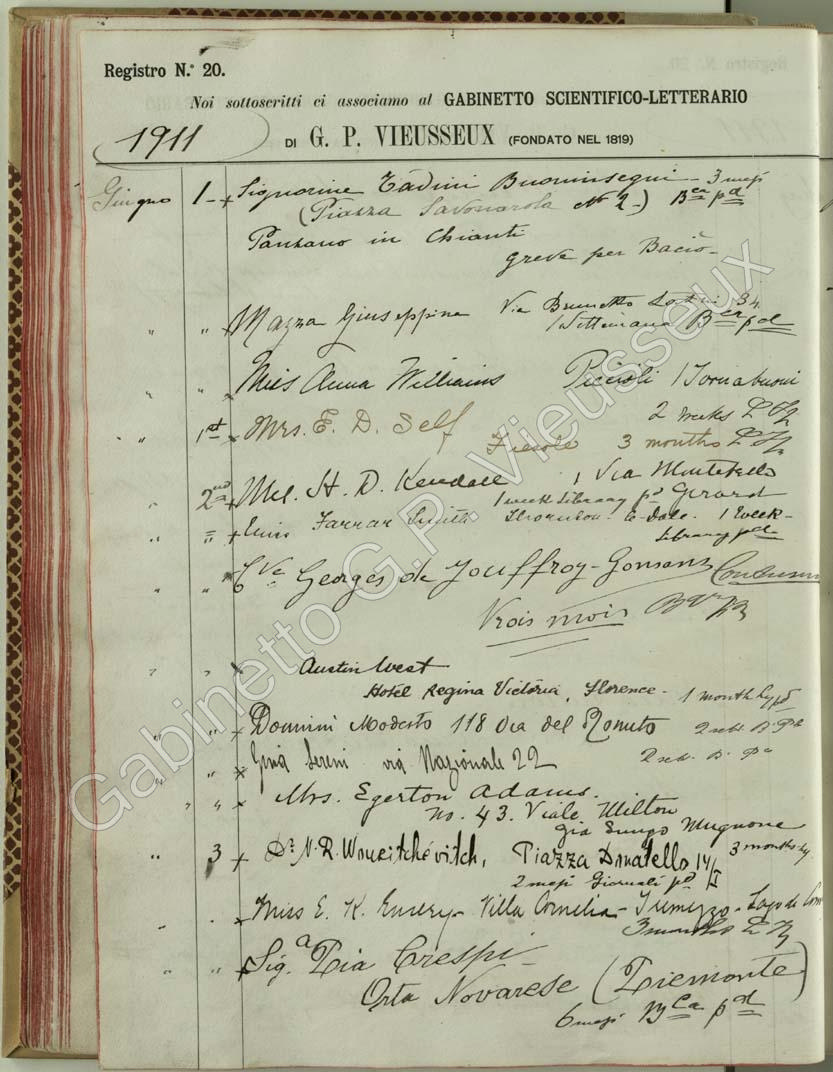 Registro N.º 20.
Noi sottoscritti ci associamo al GABINETTO SCIENTIFICO-LETTERARIO
1911 DI G. P. VIEUSSEUX (FONDATO NEL 1819)
Giugno 1 - + Signorine Tadini Buoninsegni - 3 mesi
(Piazza Savonarola No 2-) Bca pd
Panzano in Chianti
Greve per
" " Mazza Giuseppina Via Brunetto Latini 34
1 Settimana Bca pd
" " Miss Anna Williams Piccioli 1 Tornabuoni
2 weeks
" 1st Mrs. E. D. Self Fiesole 3 months
" 2nd H. D. Kendall 1 Via Montebello
1 week library pd Girard
" = + Farrar Smith 1 Week -
library pd
" " Georges de Jouffroy-Gonsans
Trois mois
" " Austin West
Hotel Regina Victoria, Florence - 1 month Ly pd
" " + Domnini Modesto 118 Via del Romito
" " Gina Sereni via Nazionale 22
" " Mrs. Egerton Adams.
No. 43. Viale Milton
già Lungo Mugnone
" 3 + Dr. N. R. Woueitchévitch, Piazza Donatello 14/I 3 months Ly.
2 mesi Giornali pd
" Miss E. K. Emery - Villa Cornelia - Tremezzo - Lago de Com
3 months
" " Sig.a Pia Crespi
Orta Novarese (Piemonte)
6 mesi Bca pd
Gabinetto G.P. Vieusseux